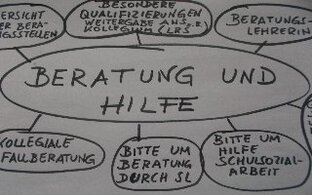 ERSICHT
ER BERA-
GSSTELLEN
BESONDERE
QUALIFIZIERUNGEN
WEITERGABE ANS
KOLLEGIUM (LRS
BERATUNGS-
LEHRERIN
BERATUNG UND
HILFE
KOLLEGIALE
FALLBERATUNG
BITTE UM
BERATUNG
DURCH SL
BITTE UM
HILFE
SCHULSOZIAL-
ARBEIT